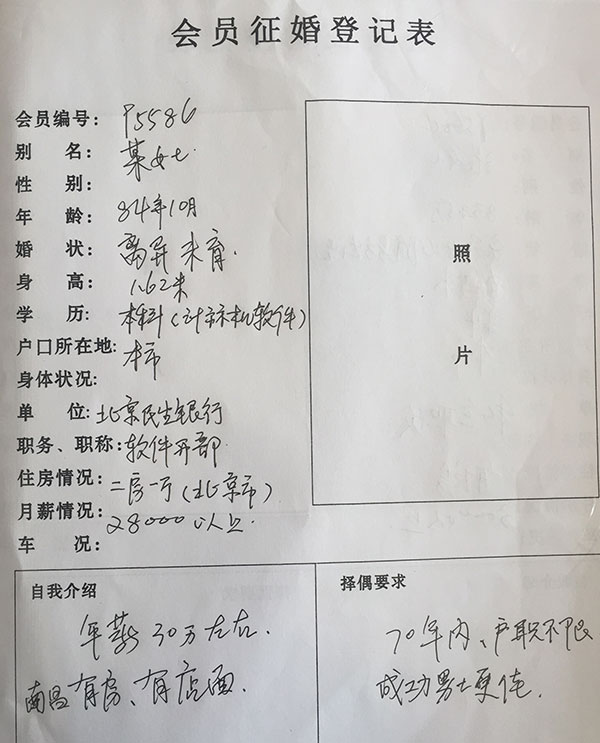 会员征婚登记表
会员编号: P5586
别 名: 某女士
性 别:
年 龄: 84年10月
婚 状: 离异 未育.
身 高: 1.62米
学 历: 本科(计算机软件)
户口所在地: 本市
身体状况:
单 位: 北京民生银行
职务、职称: 软件开部
住房情况: 二房一厅(北京市)
月薪情况: 28000以上.
车 况:
照
片
自我介绍
年薪30万左右.
南昌有房、有店面.
择偶要求
70年内、户职不限
成功男士更佳.